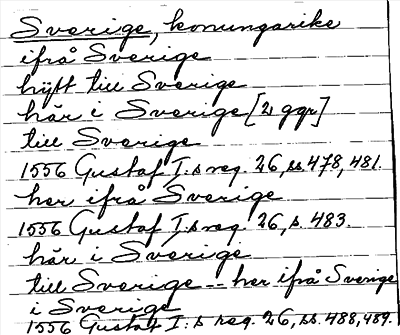 Sverige, konungarike
ifrå Sverige
hijtt till Sverige
här i Sverige [2 ggr]
till Sverige
1556 Gustaf I:s reg. 26, ss. 478, 481.
her ifrå Sverige
1556 Gustaf I:s reg. 26, s. 483.
här i Sverige
till Sverige -- her ifrå Sverige
i Sverige
1556 Gustaf I:s reg. 26, ss. 488, 489.